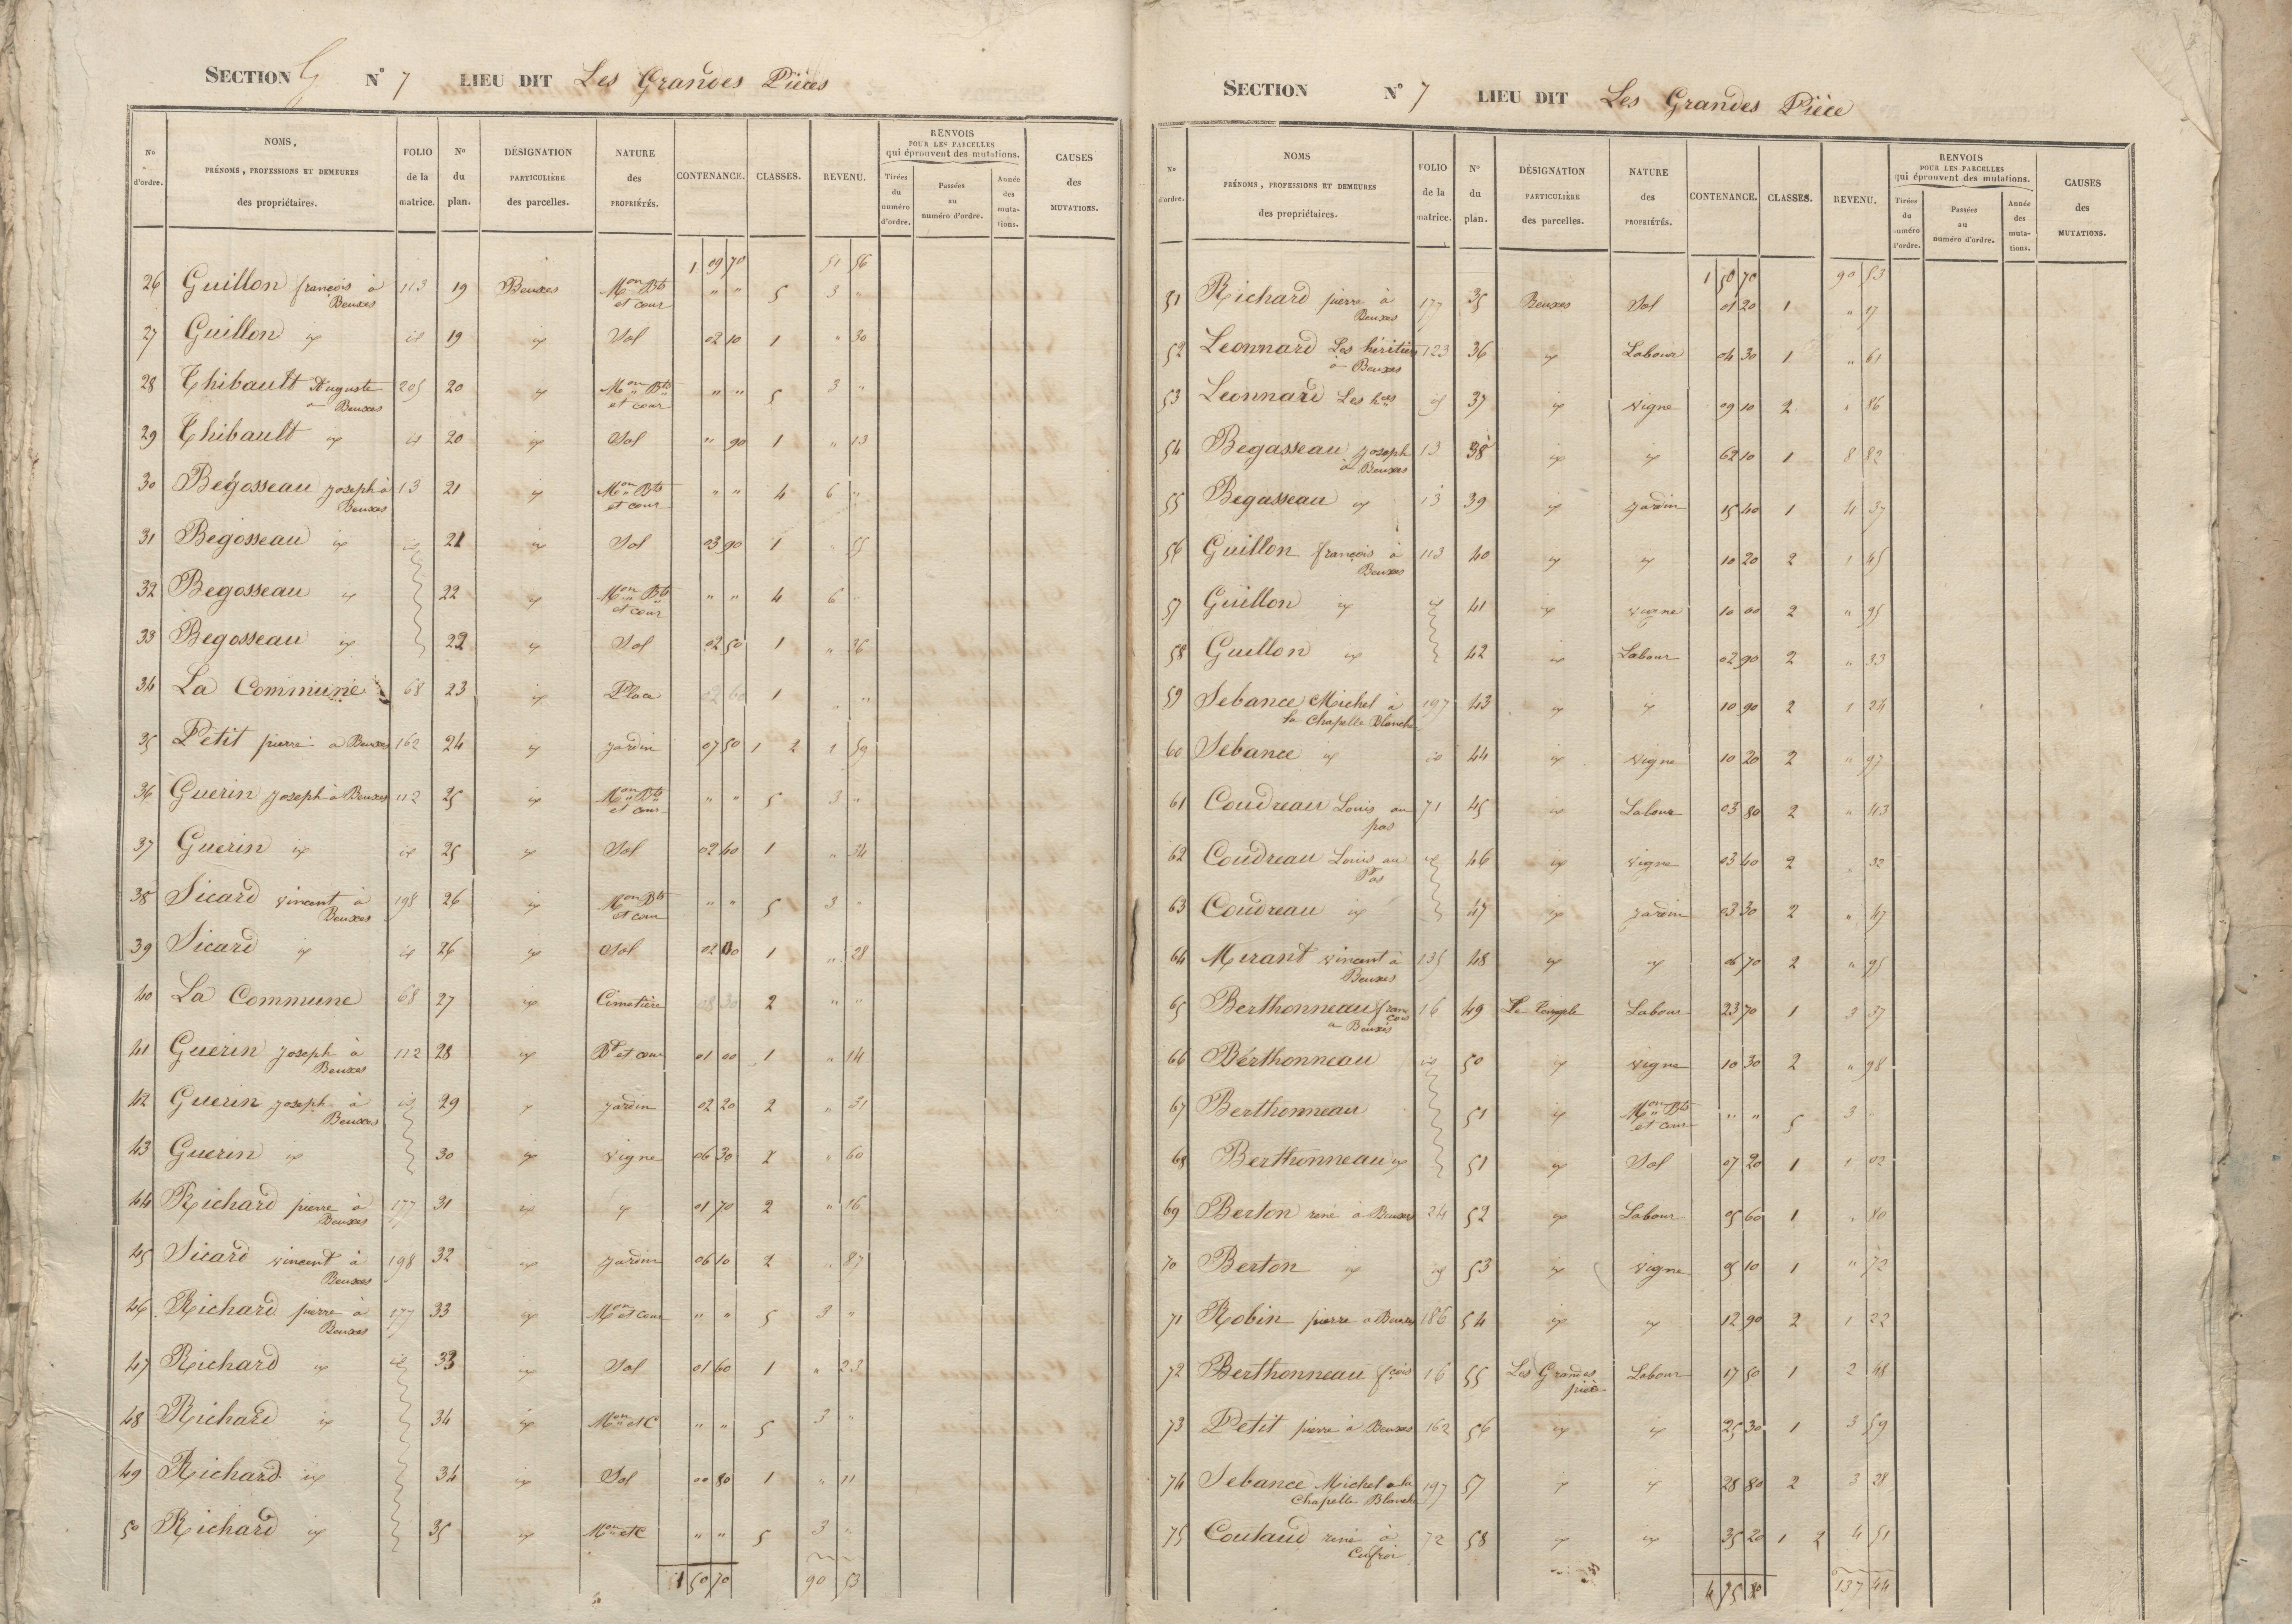 SECTION G N° 7 LIEU DIT Les Grandes Pièces
N° d'ordre. NOMS, PRÉNOMS, PROFESSIONS ET DEMEURES des propriétaires. FOLIO de la matrice. N° du plan. DÉSIGNATION PARTICULIÈRE des parcelles. NATURE des PROPRIÉTÉS. CONTENANCE. CLASSES. REVENU. RENVOIS POUR LES PARCELLES qui éprouvent des mutations. Tirées du numéro d'ordre. Passées au numéro d'ordre. Année des mutations. CAUSES des MUTATIONS.
1 09 70 51 56
26 Guillon françois à Beuxes 113 19 Beuxes Mon Bts et cour " " 5 3 "
27 Guillon id id 19 id Sol 02 10 1 " 30
28 Thibault Auguste à Beuxes 205 20 id Mon Bts et cour " " 5 3 "
29 Thibault id id 20 id Sol " 90 1 " 13
30 Begosseau joseph à Beuxes 13 21 id Mon Bts et cour " " 4 6 "
31 Begosseau id id 21 id Sol 03 90 1 " 55
32 Begosseau id 22 id Mon Bts et cour " " 4 6 "
33 Begosseau id 22 id Sol 02 50 1 " 36
34 La Commune 68 23 id Place 02 60 1 " "
35 Petit pierre à Beuxes 162 24 id jardin 07 50 1 2 1 59
36 Guerin joseph à Beuxes 112 25 id Mon Bts et cour " " 5 3 "
37 Guerin id id 25 id Sol 02 40 1 " 34
38 Sicard vincent à Beuxes 198 26 id Mon Bts et cour " " 5 3 "
39 Sicard id id 26 id Sol 02 00 1 " 28
40 La Commune 68 27 id Cimetière 08 30 2 " "
41 Guerin joseph à Beuxes 112 28 id Bt et cour 01 00 1 " 14
42 Guerin joseph à Beuxes id 29 id jardin 02 20 2 " 31
43 Guerin id 30 id vigne 06 30 2 " 60
44 Richard pierre à Beuxes 177 31 id id 01 70 2 " 16
45 Sicard vincent à Beuxes 198 32 id jardin 06 10 2 " 87
46 Richard pierre à Beuxes 177 33 id Mon et cour " " 5 3 "
47 Richard id id 33 id Sol 01 60 1 " 23
48 Richard id 34 id Mon et C " " 5 3 "
49 Richard id 34 id Sol 00 80 1 " 11
50 Richard id 35 id Mon et C " " 5 3 "
1 50 70 90 53
SECTION N° 7 LIEU DIT Les Grandes Pièce
N° d'ordre. NOMS PRÉNOMS, PROFESSIONS ET DEMEURES des propriétaires. FOLIO de la matrice. N° du plan. DÉSIGNATION PARTICULIÈRE des parcelles. NATURE des PROPRIÉTÉS. CONTENANCE. CLASSES. REVENU. RENVOIS POUR LES PARCELLES qui éprouvent des mutations. Tirées du numéro d'ordre. Passées au numéro d'ordre. Année des mutations. CAUSES des MUTATIONS.
1 50 70 90 53
51 Richard pierre à Beuxes 177 35 Beuxes Sol 01 20 1 " 17
52 Leonnard Les héritiers à Beuxes 123 36 id Labour 04 30 1 " 61
53 Leonnard Les hers id 37 id vigne 09 10 2 " 86
54 Begasseau joseph à Beuxes 13 38 id id 62 10 1 8 82
55 Begasseau id 13 39 id jardin 15 40 1 4 37
56 Guillon françois à Beuxes 113 40 id id 10 20 2 1 45
57 Guillon id id 41 id vigne 10 00 2 " 95
58 Guillon id 42 id Labour 02 90 2 " 33
59 Sebance Michel à la Chapelle Blanche 197 43 id id 10 90 2 1 24
60 Sebance id id 44 id vigne 10 20 2 " 97
61 Coudreau Louis au pas 71 45 id Labour 03 80 2 " 43
62 Coudreau Louis au Pas id 46 id vigne 03 40 2 " 32
63 Coudreau id 47 id jardin 03 30 2 " 47
64 Merant vincent à Beuxes 135 48 id id 06 70 2 " 95
65 Berthonneau françois à Beuxes 16 49 Le Temple Labour 23 70 1 3 37
66 Bérthonneau id 50 id vigne 10 30 2 " 98
67 Berthonneau 51 id Mon Bts et cour " " 5 3
68 Berthonneau id 51 id Sol 07 20 1 1 02
69 Berton rené à Beuxes 24 52 id Labour 05 60 1 " 80
70 Berton id id 53 id vigne 05 10 1 " 72
71 Robin pierre à Beuxes 186 54 id id 12 90 2 1 22
72 Berthonneau fçois 16 55 Les Grandes pièce Labour 17 50 1 2 48
73 Petit pierre à Beuxes 162 56 id id 25 30 1 3 59
74 Sebance Michel à la Chapelle Blanche 197 57 id id 28 80 2 3 28
75 Coutaud rené à 72 58 id id 35 20 1 2 4 51
4 75 80 137 44